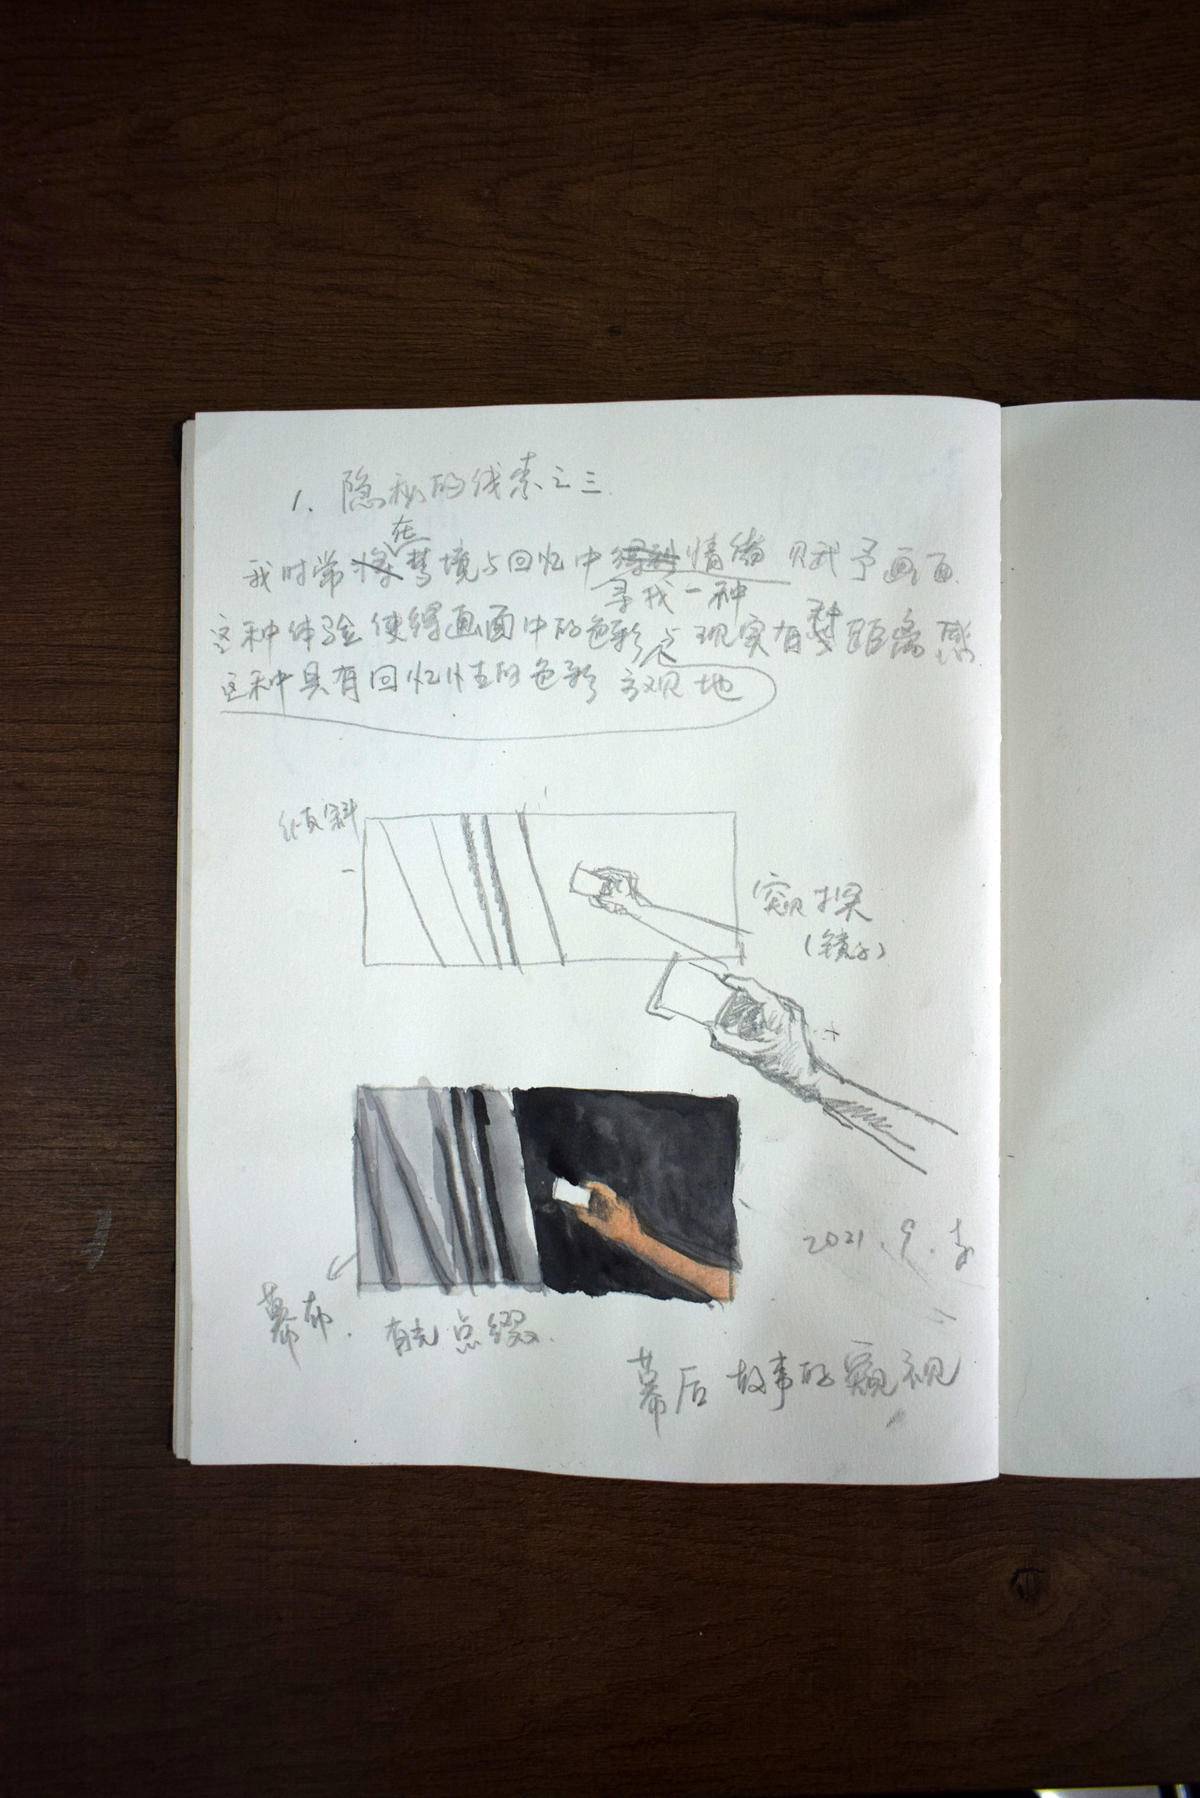 1. 隐秘的线索之三
我时常在梦境与回忆中寻找一种情绪 赋予画面
这种体验使得画面中的色彩与现实有种距离感
这种具有回忆性的色彩 主观地
倾斜
窥探
(镜子)
2021.9.李
幕布.
有光点缀.
幕后故事的窥视